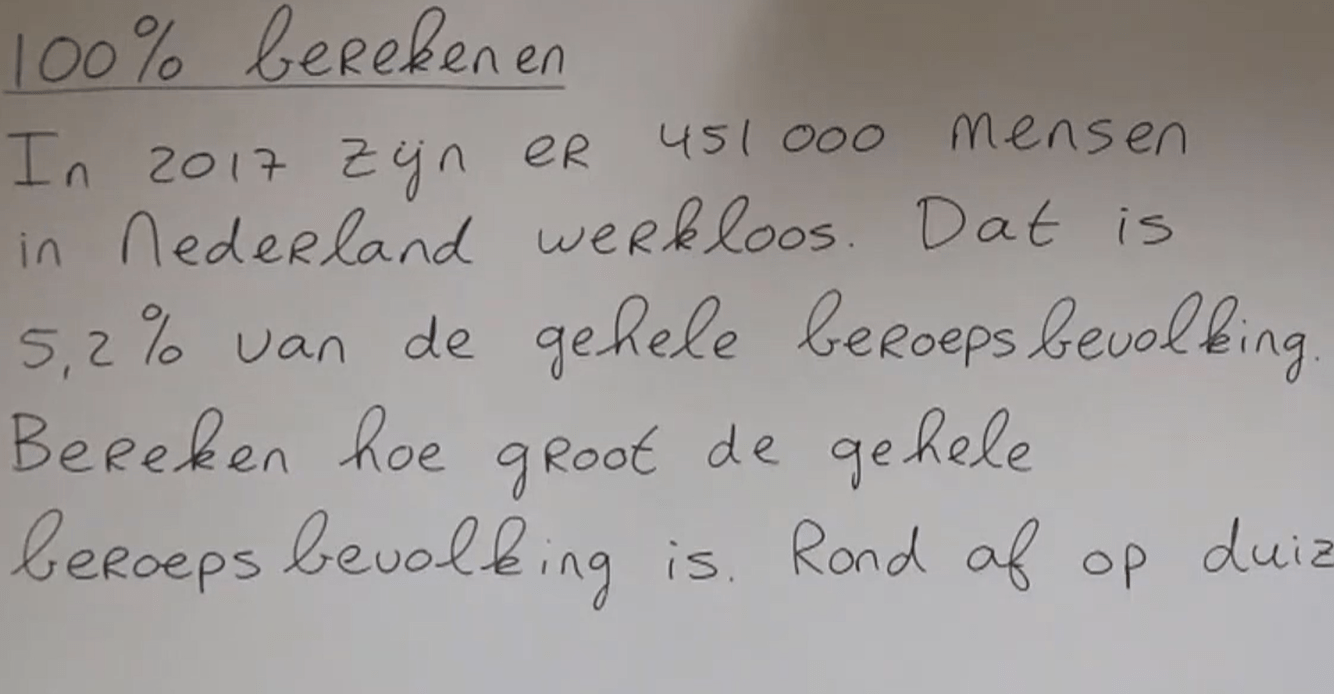 100% berekenen
In 2017 zijn er 451 000 mensen
in Nederland werkloos. Dat is
5,2% van de gehele beroepsbevolking.
Bereken hoe groot de gehele
beroepsbevolking is. Rond af op duiz